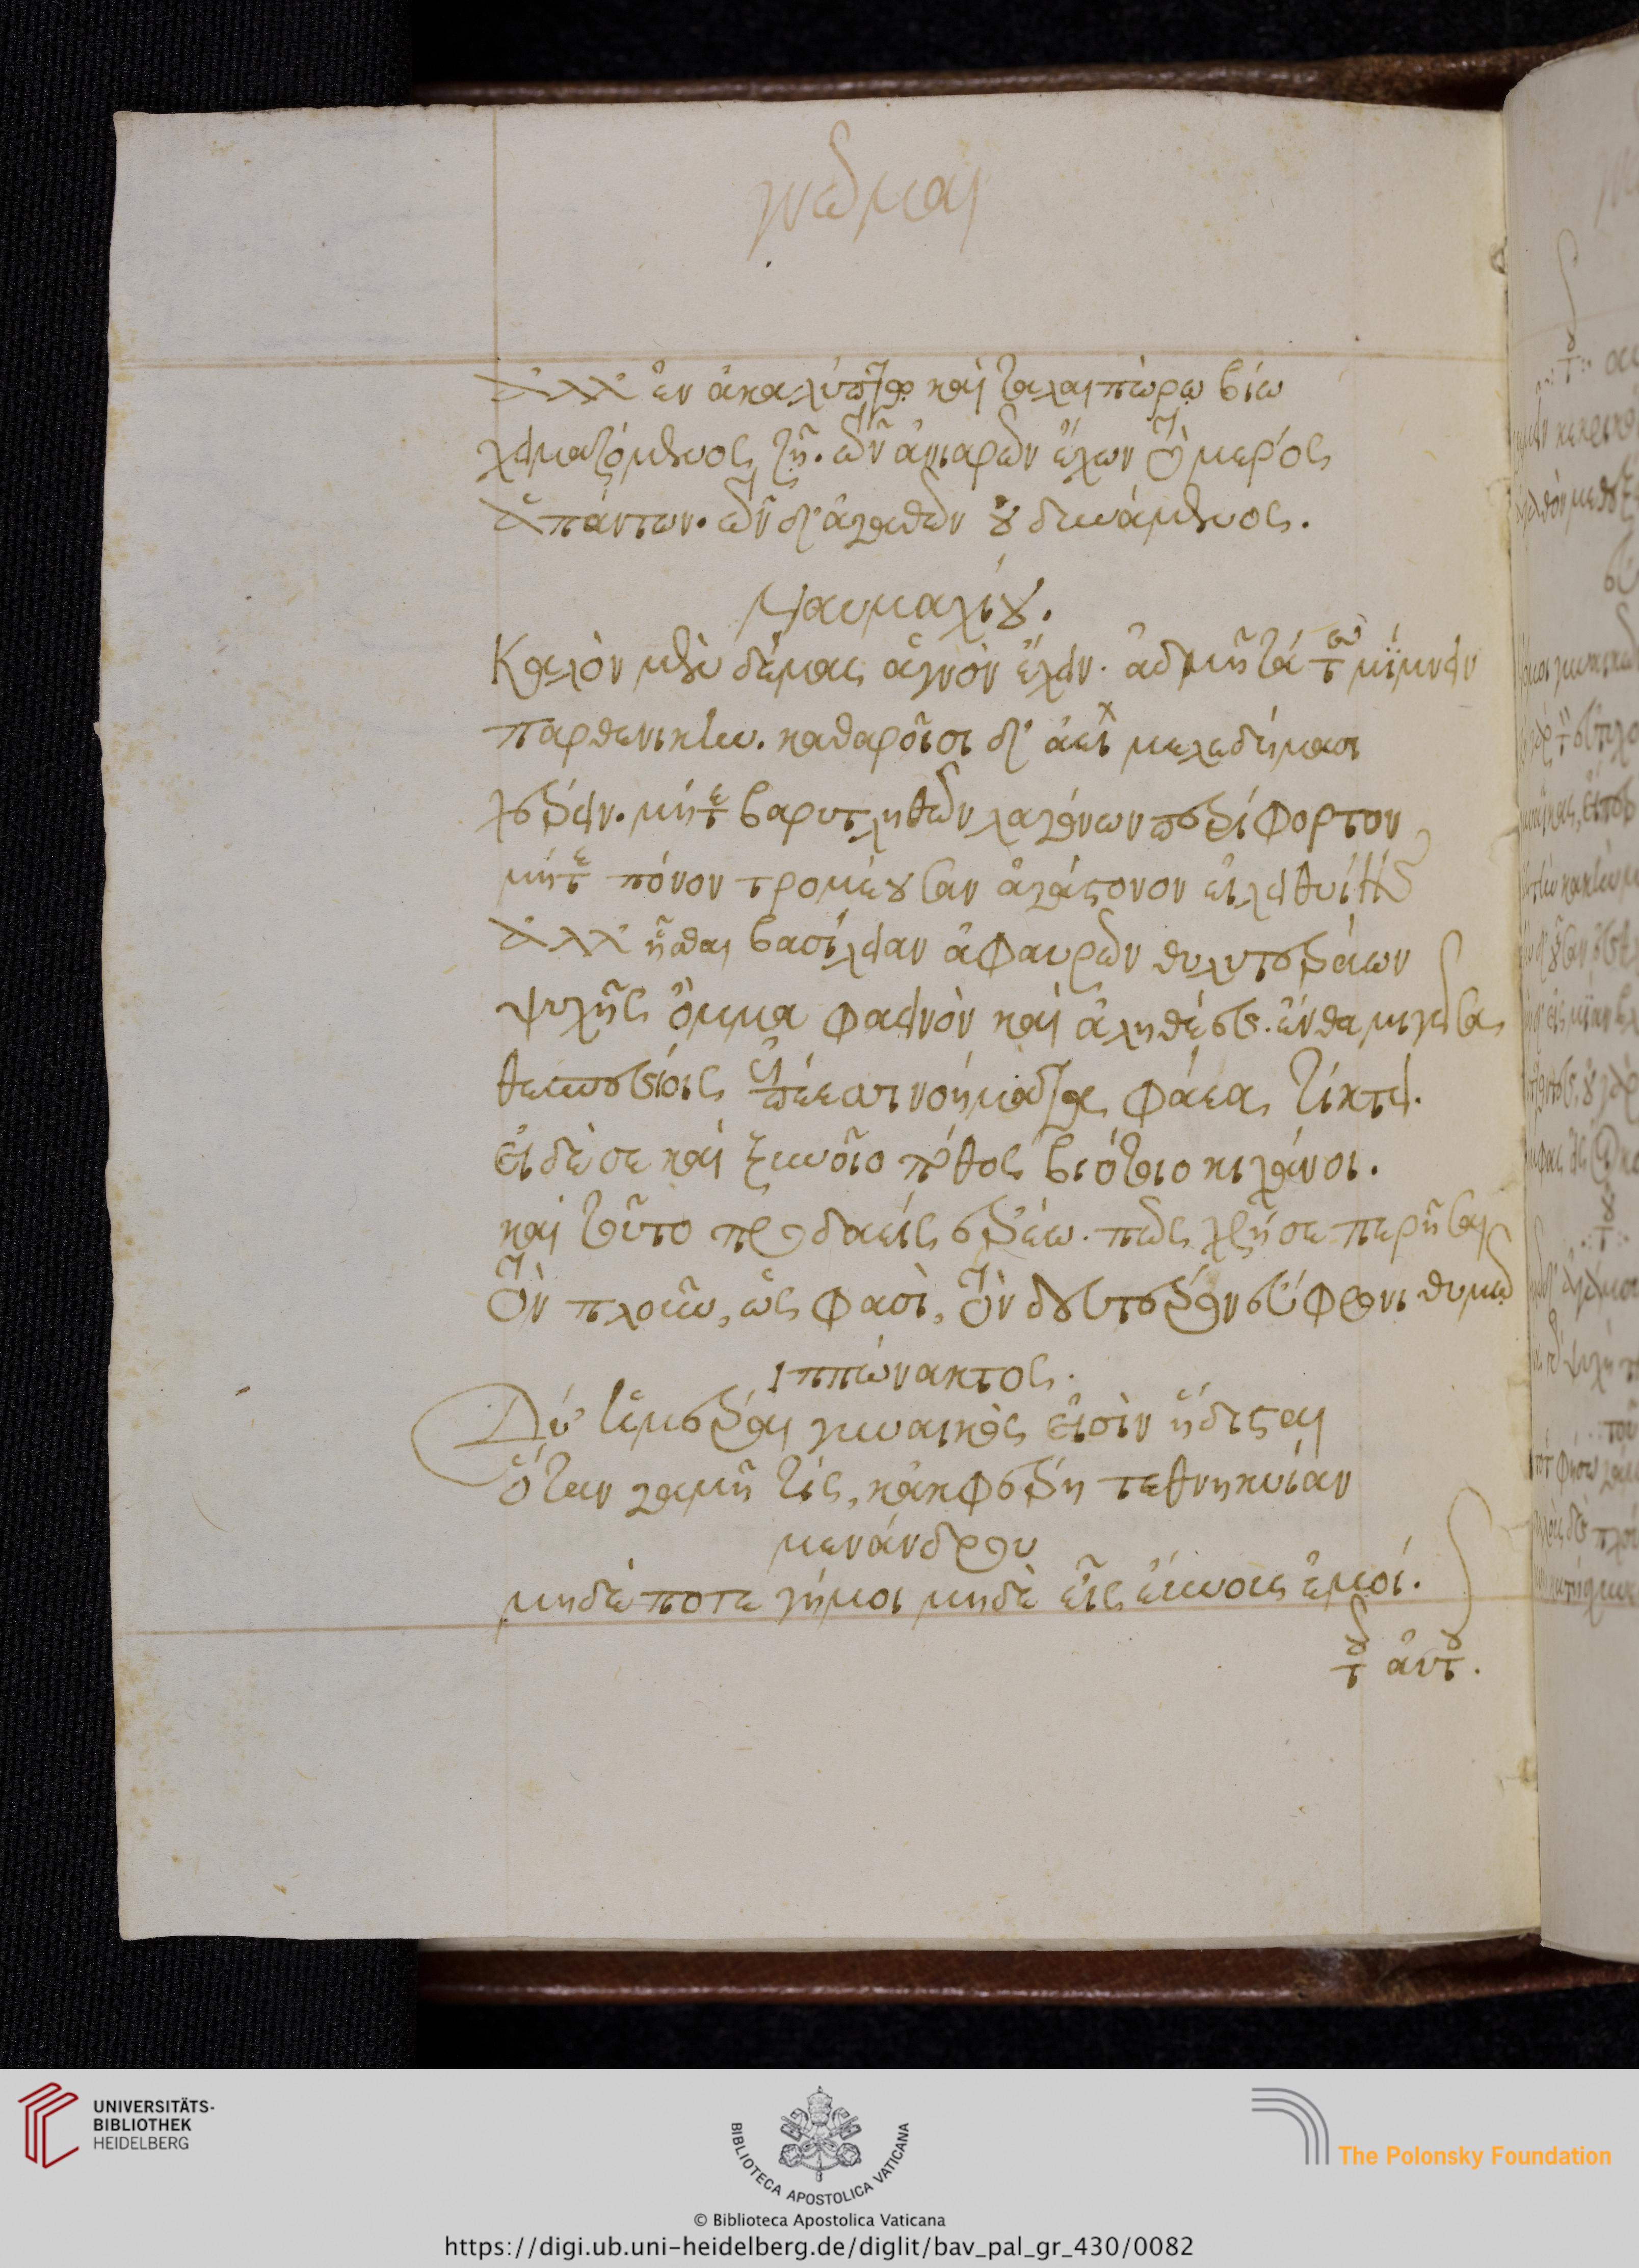 γνῶμαι
ἀλλ' ἐν ἀκαλύπτῳ καὶ ταλαιπώρῳ βίῳ
χειμαζόμενος ζῇ. τῶν ἀνιαρῶν ἔχων τὸ μέρος
ἁπάντων. τῶν δ' ἀγαθῶν οὐ δυνάμενος.
ναυμαχίου.
Καλὸν μὲν δέμας ἁγνὸν ἔχειν. ἀδμῆτά τε μίμνειν
παρθενικὴν. καθαροῖσι δ' ἀεὶ μελεδήμασι
χαίρειν. μήτε βαρυτλήτων λαγόνων περὶ φόρτον
μήτε πόνον τρομέουσαν ἀγάστονον εἰλειθυίης
ἀλλ' ἧσθαι βασίλειαν ἀφαυρῶν θηλυτεράων
ψυχῆς ὄμμα φαεινὸν καὶ ἀληθέσιν. ἔνθα μιγεῖσα
θεσπεσίοις ἐπέεσσι νοήματος φάεα τίκτει.
εἰ δὲ σε καὶ ξυνοῖο πόθος βιότοιο κιχάνοι.
καὶ τοῦτο προδαεὶς ἐρέω. πῶς χρή σε περῆσαι
τὸν πλοῦν, ὥς φασὶ, τὸν δεύτερον εὔφρονι θυμῷ
ἱππώνακτος.
Δύ' ἡμέραι γυναικὸς εἰσὶν ἥδισται
ὅταν γαμῇ τίς, κἀκφέρῃ τεθνηκυίαν
μενάνδρου
μηδέποτε γήμοι μηδὲ εἷς εὔνους ἐμοί.
τοῦ αὐτοῦ.
UNIVERSITÄTS-
BIBLIOTHEK
HEIDELBERG
BIBLIOTECA APOSTOLICA VATICANA
The Polonsky Foundation
© Biblioteca Apostolica Vaticana
https://digi.ub.uni-heidelberg.de/diglit/bav_pal_gr_430/0082